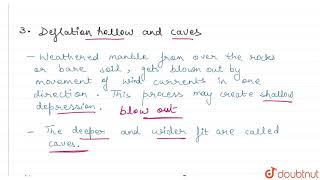 3. Deflation hollow and caves
- Weathered mantle from over the rocks
or bare soil, gets blown out by
movement of wind currents in one
direction. This process may create shallow
depression. blow out
- The deeper and wider fit are called
caves.
doubtnut